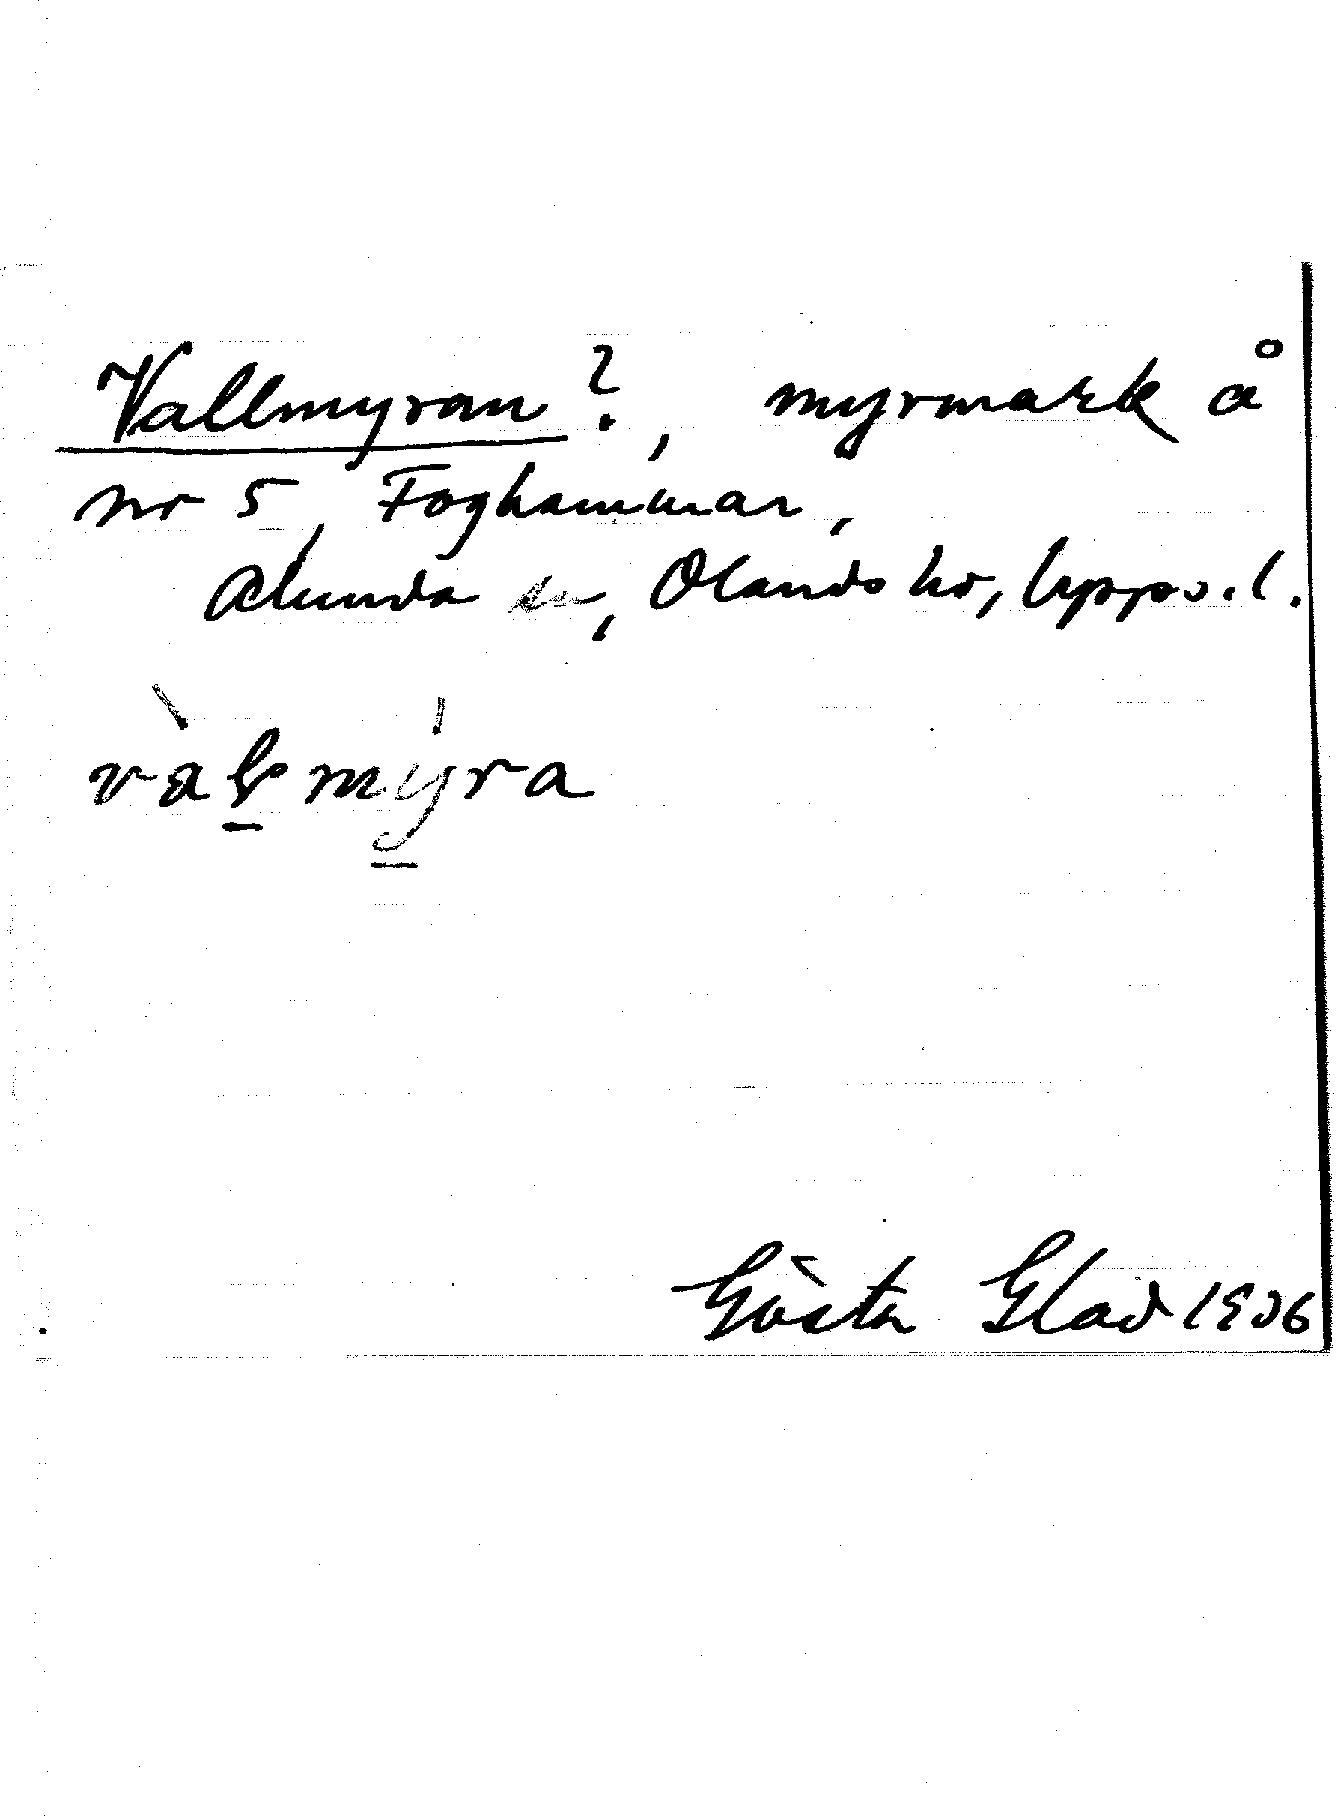 Vallmyran?, myrmark å
nr 5, Foghammar,
Alunda sn, Olands hd, Upps. l.
vàlmýra
Gösta Glad 1936